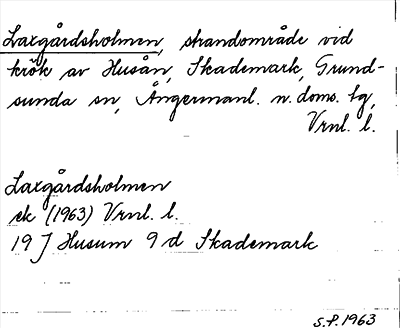 Laxgårdsholmen, strandområde vid
krök av Husån, Skademark, Grund-
sunda sn, Ångermanl. n. doms. tg,
Vrnl. l.
Laxgårdsholmen
ek (1963) Vrnl. l.
19 J Husum 9 d Skademark
S.P. 1963